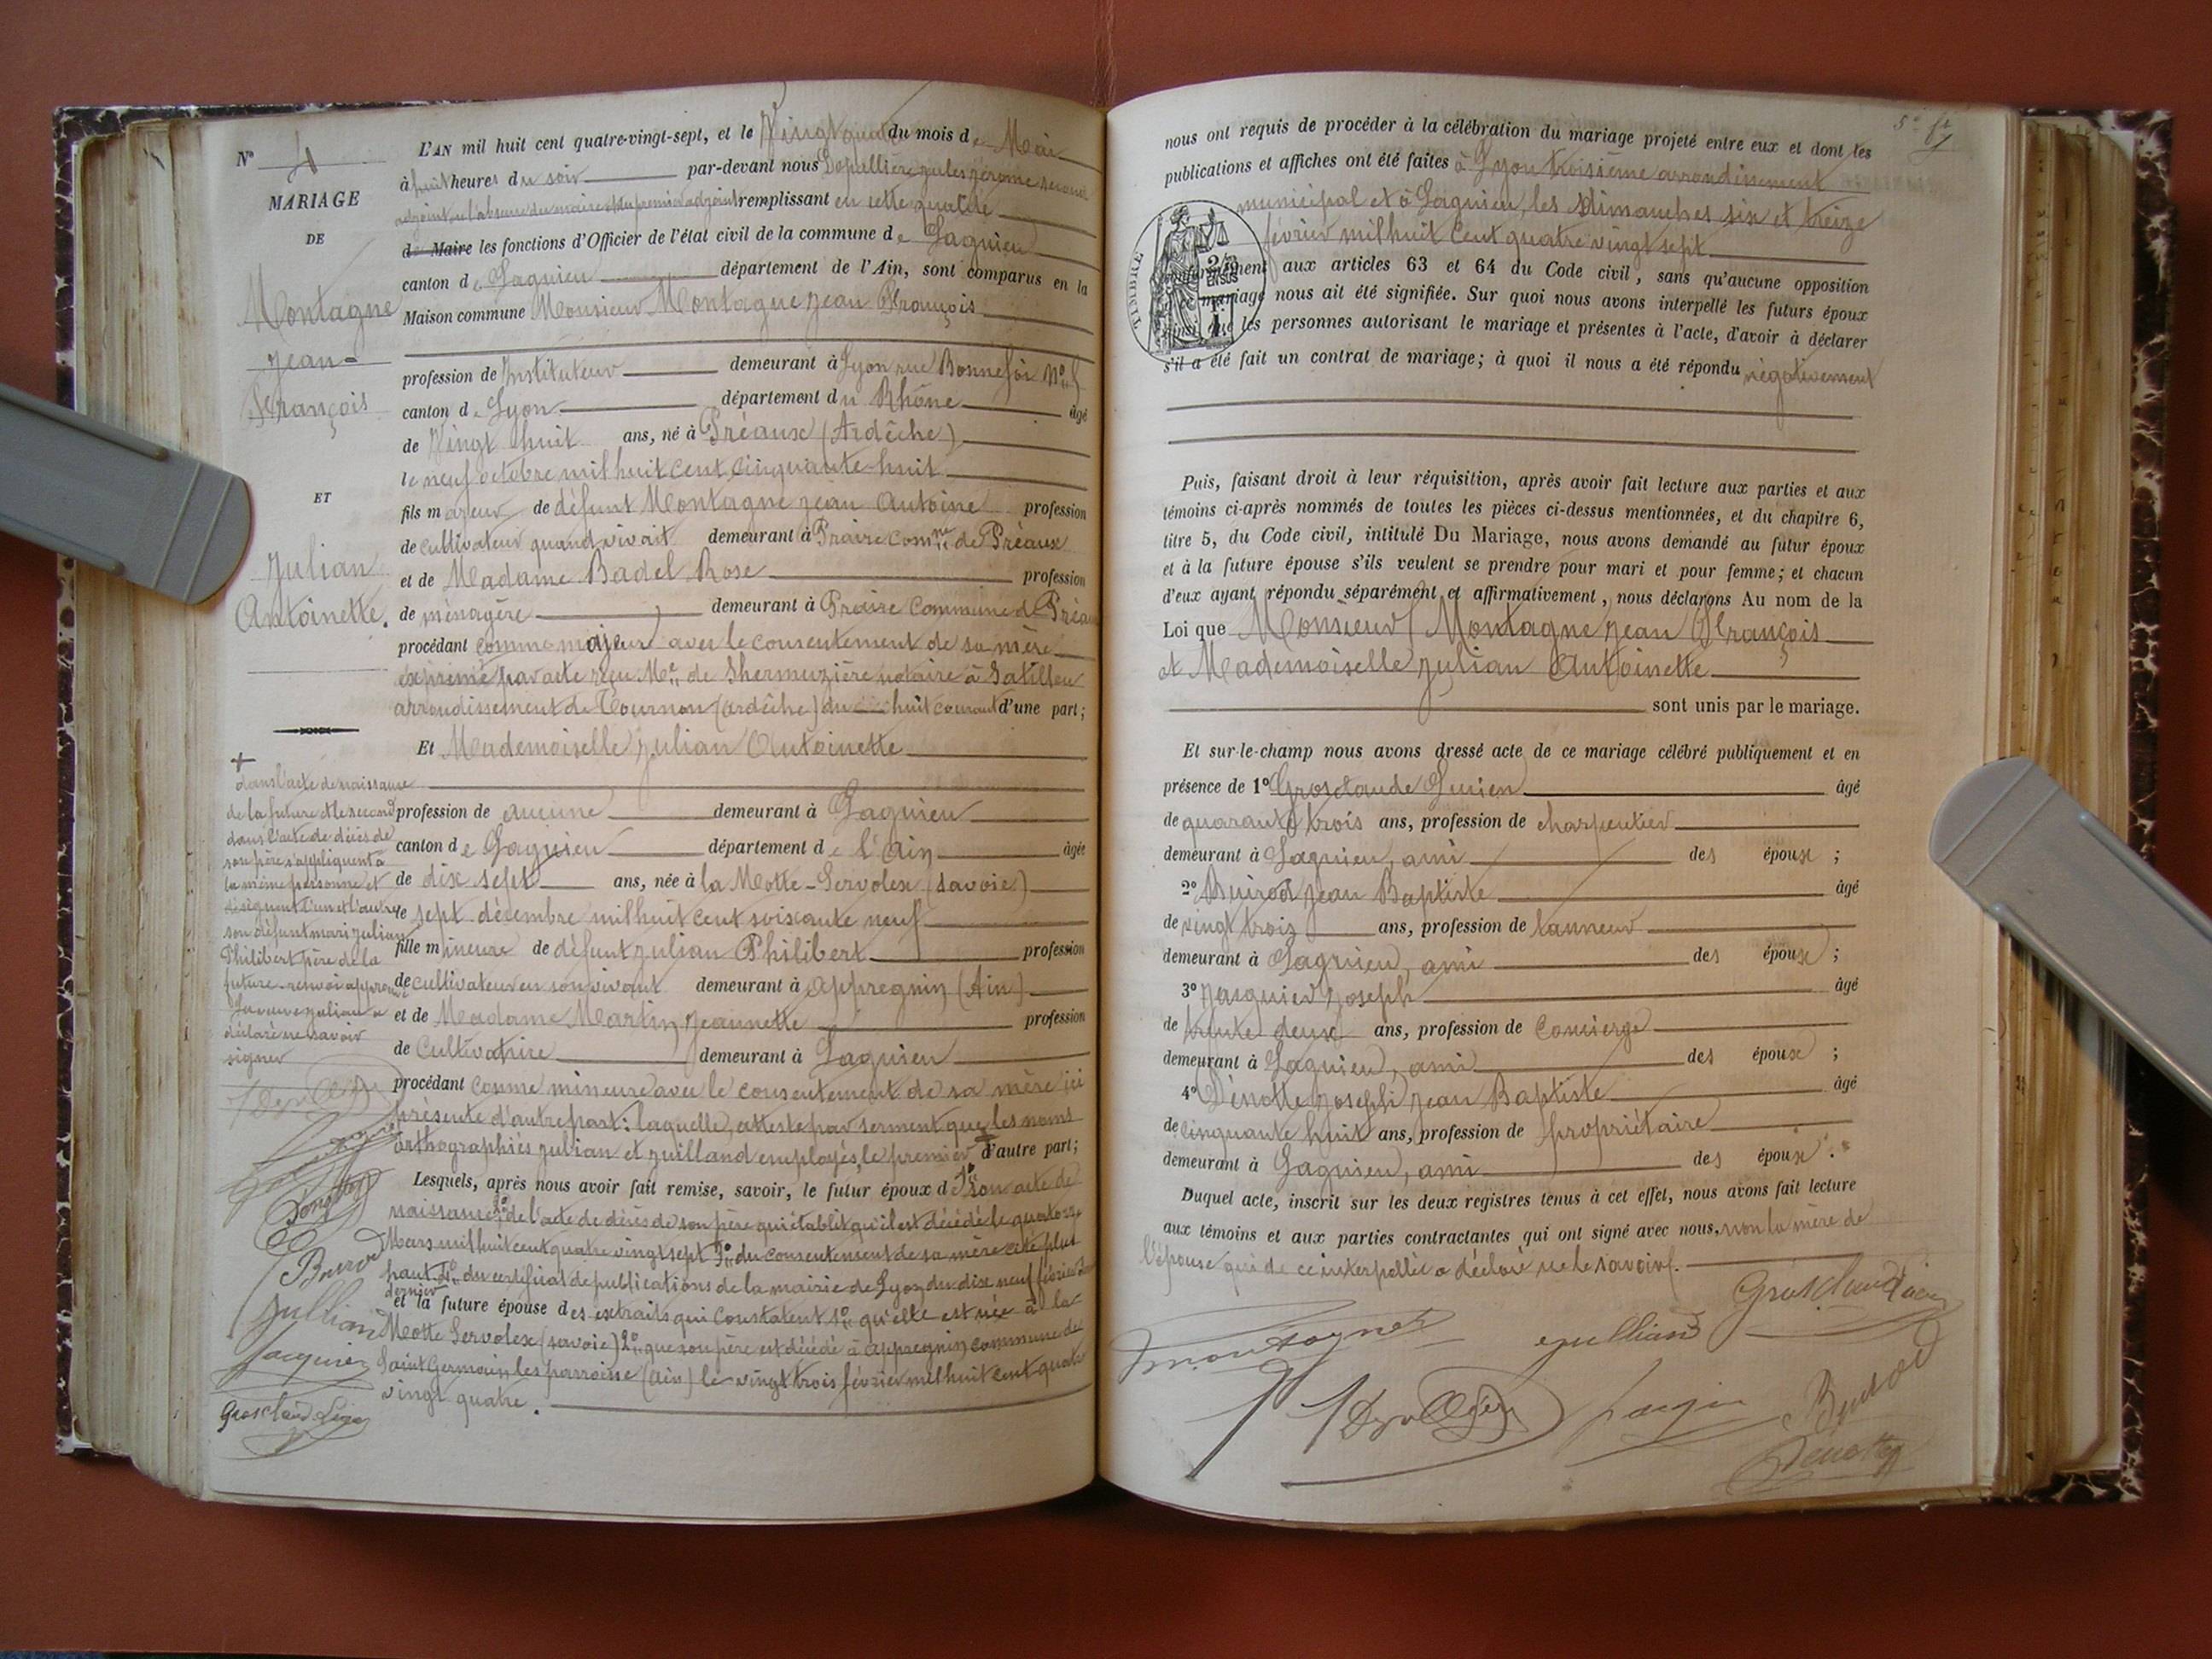 N° 4
MARIAGE
DE
Montagne
Jean-
François
ET
Julian
Antoinette.
L'AN mil huit cent quatre-vingt-sept, et le Vingt du mois de Mai
à huit heures du soir par-devant nous Depellière Jules Jérome second
adjoint en l'absence du maire et du premier adjoint remplissant en cette qualité
de Maire les fonctions d'Officier de l'état civil de la commune de Lagnieu
canton de Lagnieu département de l'Ain, sont comparus en la
Maison commune Monsieur Montagne Jean François
profession de Instituteur demeurant à Lyon rue Bonnefoi N°
canton de Lyon département du Rhône âgé
de Vingt huit ans, né à Préaux (Ardèche)
le neuf octobre mil huit cent cinquante-huit
fils majeur de défunt Montagne Jean Antoine profession
de cultivateur quand vivait demeurant à Praire Comne de Préaux
et de Madame Badel Rose profession
de ménagère demeurant à Praire Commune de Préaux
procédant comme majeur avec le consentement de sa mère
exprimé par acte reçu Me de Shermezière notaire à Satillieu
arrondissement de Tournon (Ardèche) du huit courant d'une part;
Et Mademoiselle Julian Antoinette
profession de aucune demeurant à Lagnieu
canton de Lagnieu département de l'Ain âgée
de dix sept ans, née à la Motte-Servolex (Savoie)
le sept décembre mil huit cent soixante neuf
fille mineure de défunt Julian Philibert profession
de cultivateur en son vivant demeurant à Appregnin (Ain)
et de Madame Martin Jeannette profession
de Cultivatrice demeurant à Lagnieu
procédant comme mineure avec le consentement de sa mère ici
présente d'autre part: laquelle, atteste par serment que les noms
orthographiés Julian et Juilland employés, le premier + d'autre part;
Lesquels, après nous avoir fait remise, savoir, le futur époux d 1° son acte de
naissance 2° de l'acte de décès de son père qui établit qu'il est décédé le quatorze
Mars mil huit cent quatre vingt sept 3° du consentement de sa mère cité plus
haut 4° du certificat de publications de la mairie de Lyon du dix neuf février
dernier
et la future épouse des extraits qui constatent 1° qu'elle est née à la
Motte Servolex (Savoie) 2° que son père est décédé à Appregnin commune de
Saint Germain les paroisse (Ain) le vingt trois février mil huit cent quatre
vingt quatre.
+
dans l'acte de naissance
de la future et le second
dans l'acte de décès de
son père s'appliquent à
la même personne et
désignent l'un et l'autre
son défunt mari Julian
Philibert père de la
future. renvoi approuvé
La veuve Julian a
déclaré ne savoir
signer
Buirod
Jullian
Jacquier
Grosclaude Lucien
nous ont requis de procéder à la célébration du mariage projeté entre eux et dont les
publications et affiches ont été faites à Lyon troisième arrondissement
municipal et à Lagnieu, les dimanches six et treize
février mil huit cent quatre vingt sept
TIMBRE
conformément aux articles 63 et 64 du Code civil, sans qu'aucune opposition
à ce mariage nous ait été signifiée. Sur quoi nous avons interpellé les futurs époux
ainsi que les personnes autorisant le mariage et présentes à l'acte, d'avoir à déclarer
s'il a été fait un contrat de mariage; à quoi il nous a été répondu négativement
Puis, faisant droit à leur réquisition, après avoir fait lecture aux parties et aux
témoins ci-après nommés de toutes les pièces ci-dessus mentionnées, et du chapitre 6,
titre 5, du Code civil, intitulé Du Mariage, nous avons demandé au futur époux
et à la future épouse s'ils veulent se prendre pour mari et pour femme; et chacun
d'eux ayant répondu séparément et affirmativement, nous déclarons Au nom de la
Loi que Monsieur Montagne Jean François
et Mademoiselle Julian Antoinette
sont unis par le mariage.
Et sur-le-champ nous avons dressé acte de ce mariage célébré publiquement et en
présence de 1° Grosclaude Lucien âgé
de quarante trois ans, profession de charpentier
demeurant à Lagnieu, ami des époux;
2° Buirod Jean Baptiste âgé
de vingt trois ans, profession de tanneur
demeurant à Lagnieu, ami des époux;
3° Jacquier Joseph âgé
de trente deux ans, profession de Concierge
demeurant à Lagnieu, ami des époux;
4° Denotte Joseph Jean Baptiste âgé
de cinquante huit ans, profession de propriétaire
demeurant à Lagnieu, ami des époux.
Duquel acte, inscrit sur les deux registres tenus à cet effet, nous avons fait lecture
aux témoins et aux parties contractantes qui ont signé avec nous, non la mère de
l'épouse qui de ce interpellée a déclaré ne le savoir.
Grosclaude Lucien
Montagne Julliand
Buirod
Denotte